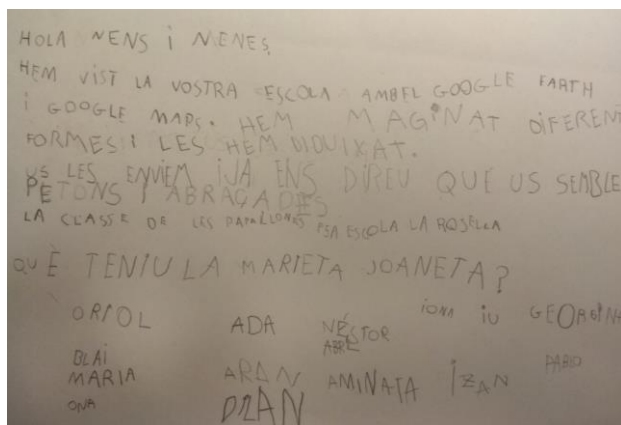 HOLA NENS i NENES
HEM VIST LA VOSTRA ESCOLA AMBEL GOOGLE EARTH
i GOOGLE MAPS. HEM iMAGINAT DIFERENT
FORMES I LES HEM DIDUIXAT.
US LES ENVIEM IJA ENS DIREU QUE US SEMBLE
PETONS I ABRAÇADES
LA CLASSE DE LES PAPALLONES ESCOLA LA ROSELLA
QUÈ TENIU LA MARIETA JOANETA?
ORIOL ADA NÉSTOR iONA iU GEORGINA
ABRIL
BLAI
MARIA ARAN AMINATA IZAN PABLO
ONA